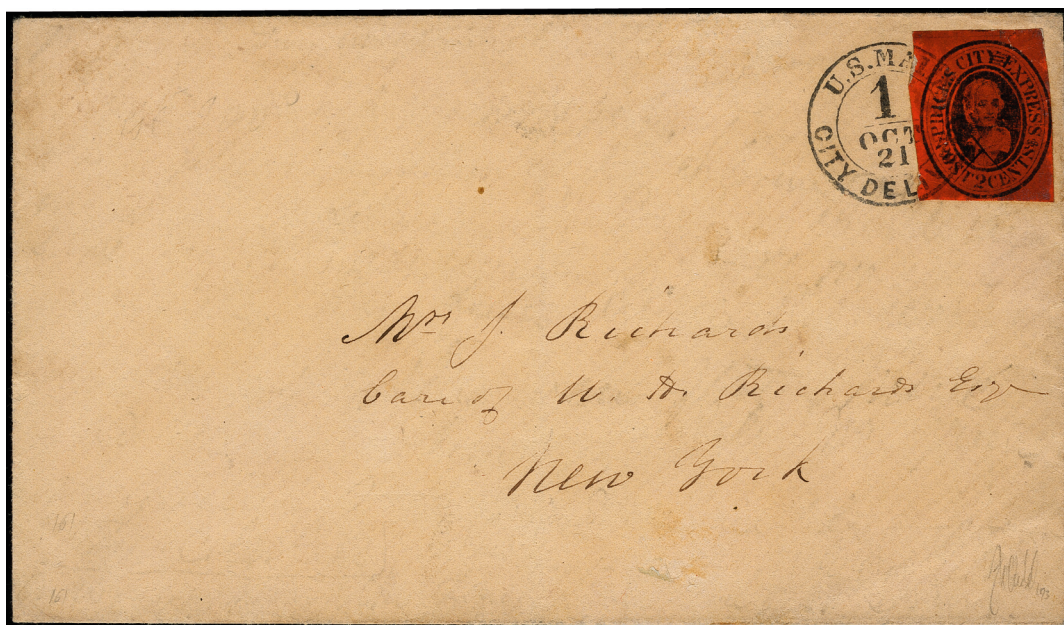 U.S. MA
1
OCT
21
CITY DELI
PRICE'S CITY EXPRESS
POST 2 CENTS
Mrs J. Richards
Care of W. H. Richards Esqr
New York
161
161